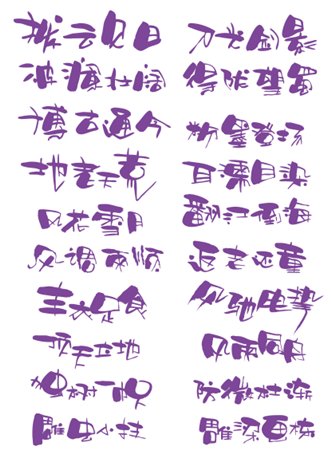 拨云见日
波澜壮阔
博古通今
地老天荒
风花雪月
风调雨顺
丰衣足食
顶天立地
独树一帜
雕虫小技
刀光剑影
得陇望蜀
粉墨登场
耳濡目染
翻江倒海
返老还童
风驰电掣
风雨同舟
防微杜渐
雕梁画栋